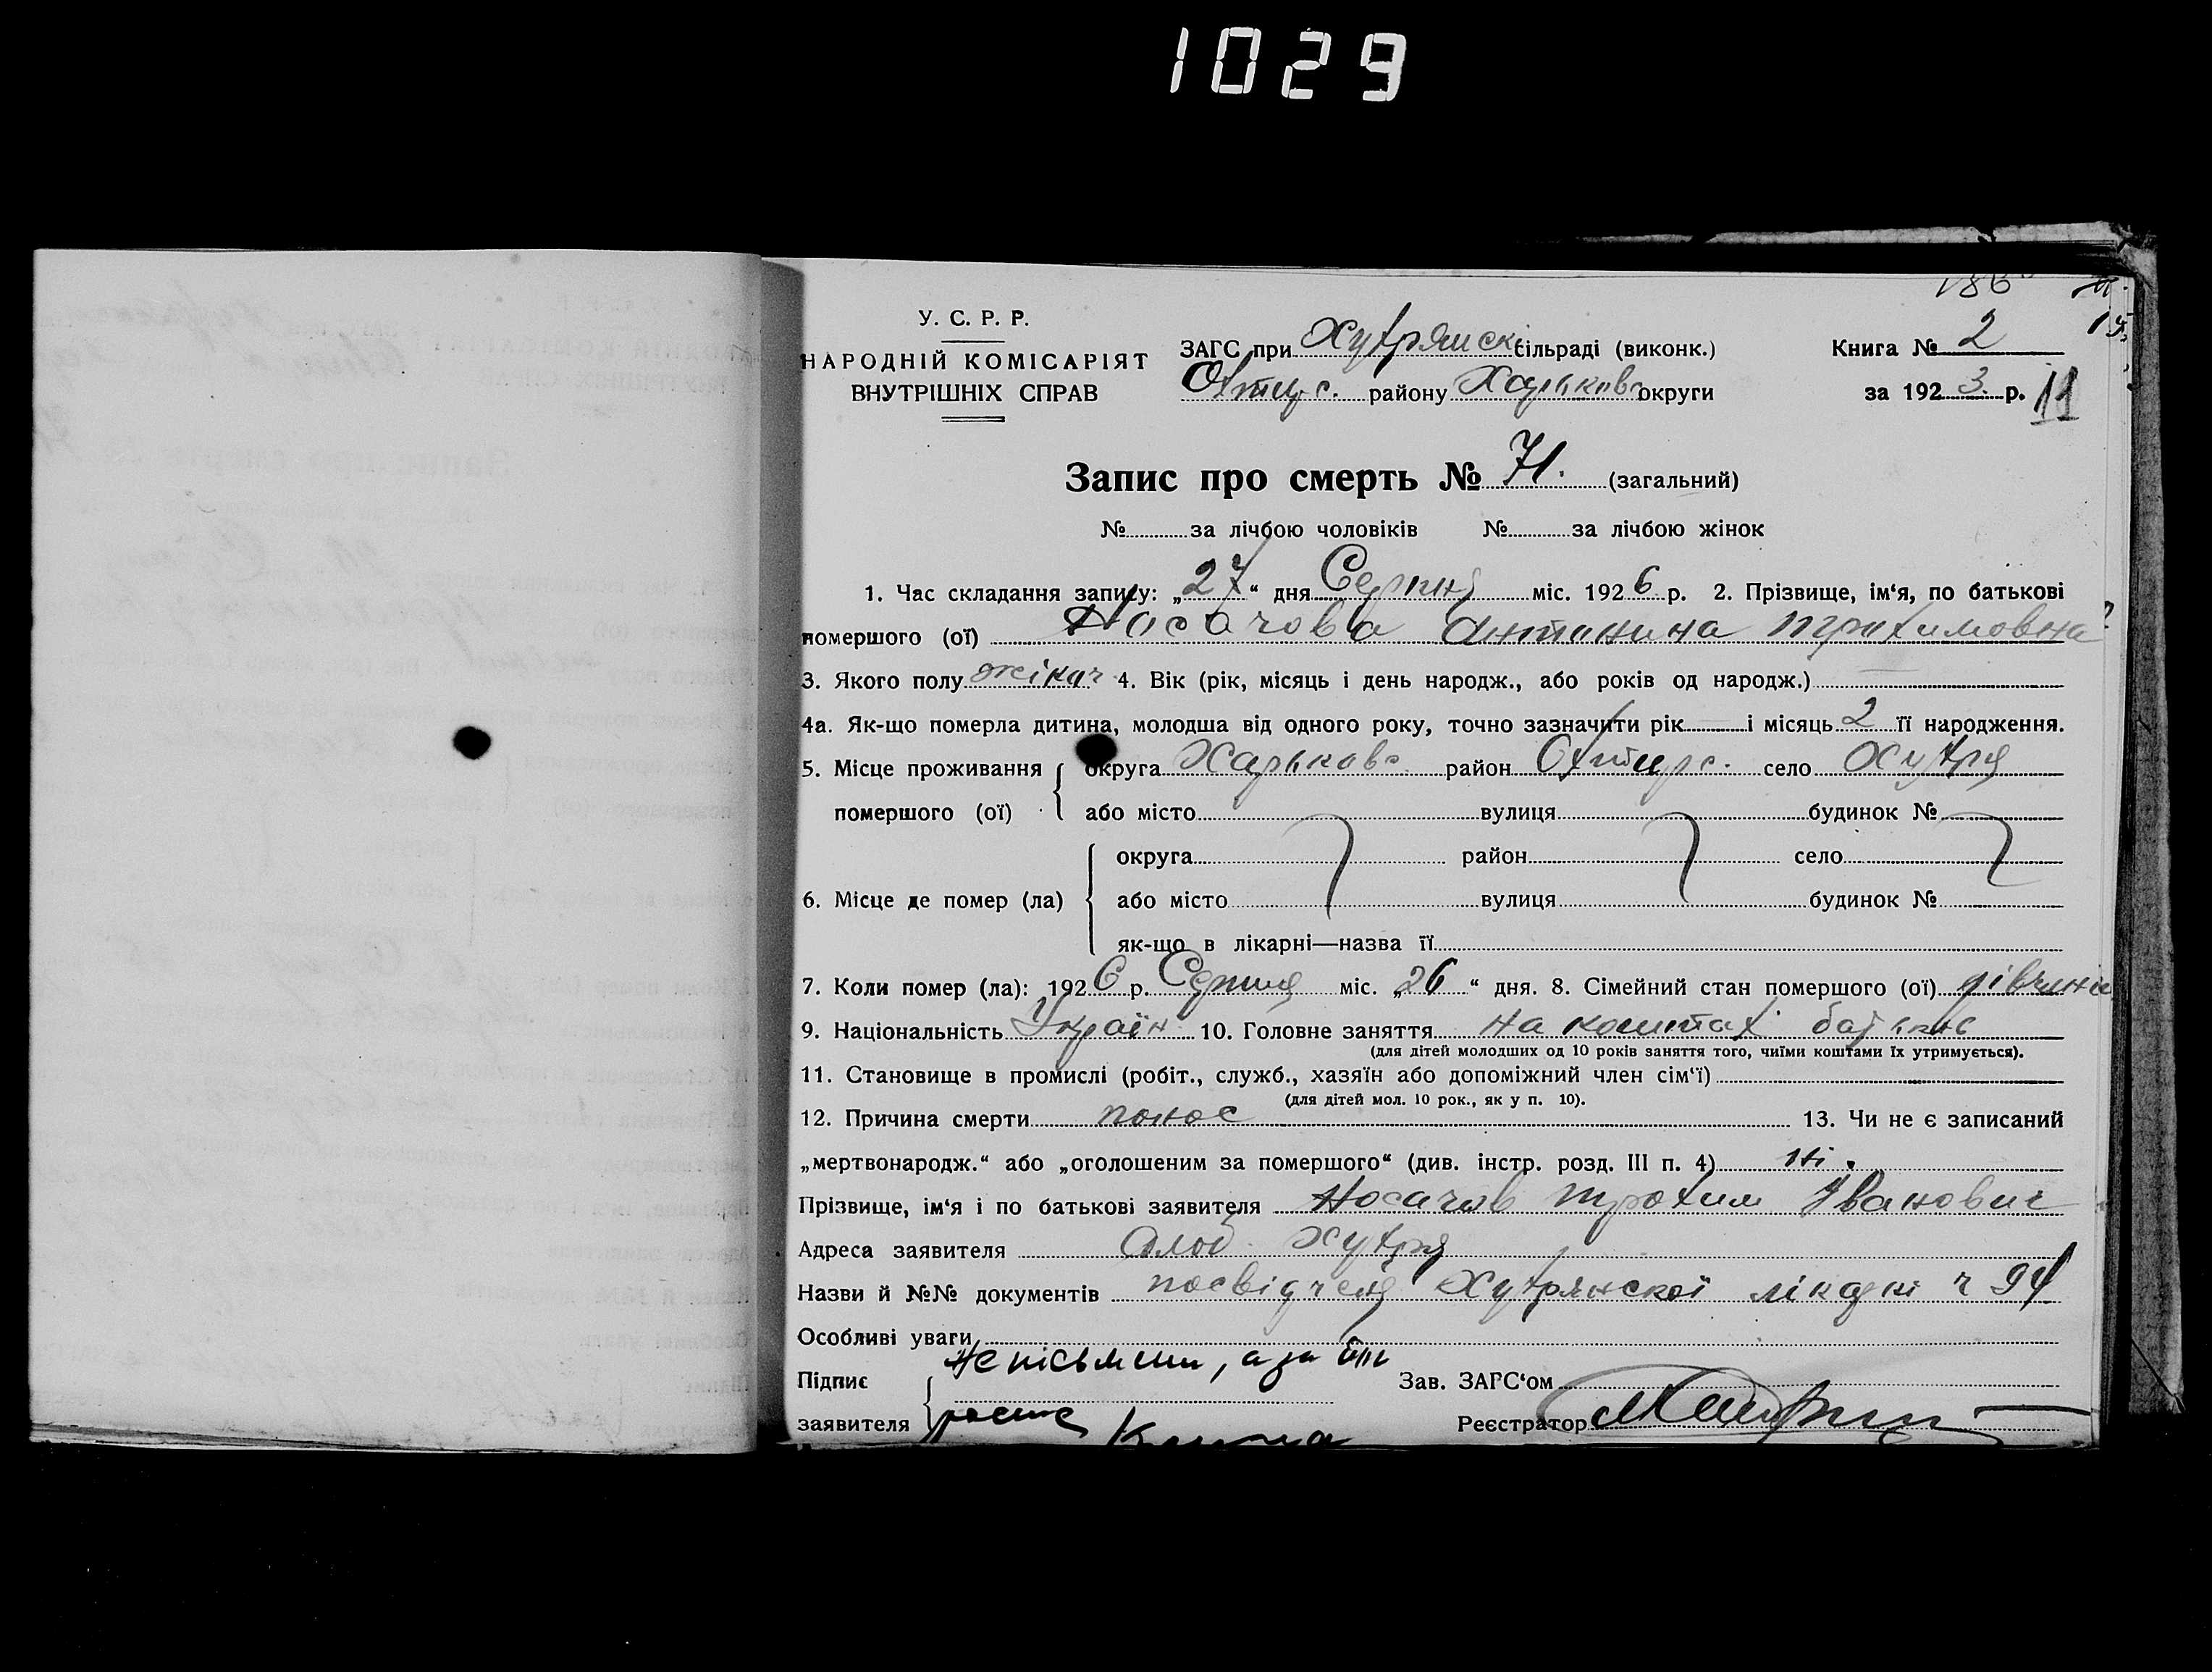 1029
У. С. Р. Р.
НАРОДНІЙ КОМІСАРІЯТ
ВНУТРІШНІХ СПРАВ
ЗАГС при Хухрянск. сільраді (виконк.)
Охтирс. району Харьковс округи
Книга № 2
за 192 3 р. 11
Запис про смерть № 71. (загальний)
№ за лічбою чоловіків № за лічбою жінок
1. Час складання запису: „27“ дня Серпня міс. 192 6 р. 2. Прізвище, ім‘я, по батькові
помершого (ої) Носачова Антонина Трохимовна
3. Якого полу жіноч. 4. Вік (рік, місяць і день народж., або років од народж.) —
4а. Як-що померла дитина, молодша від одного року, точно зазначити рік — і місяць 2 її народження.
5. Місце проживання помершого (ої) округа Харьковс. район Охтирс. село Хухря
або місто вулиця будинок №
6. Місце де помер (ла) округа район село
або місто вулиця будинок №
як-що в лікарні—назва її
7. Коли помер (ла): 192 6 р. Серпня міс. „26“ дня. 8. Сімейний стан помершого (ої)
9. Національність Україн. 10. Головне заняття на коштах батьків
(для дітей молодших од 10 років заняття того, чиїми коштами їх утримується).
11. Становище в промислі (робіт., служб., хазяїн або допоміжний член сім‘ї)
(для дітей мол. 10 рок., як у п. 10).
12. Причина смерти понос 13. Чи не є записаний
„мертвонародж.“ або „оголошеним за помершого“ (див. інстр. розд. III п. 4) ні.
Прізвище, ім‘я і по батькові заявителя Носачов Трохим Іванович
Адреса заявителя Слоб. Хухря
Назви й №№ документів посвідченя Хухрянской лікарні ч 94
Особливі уваги
Підпис заявителя Не пісьмени, а за
Зав. ЗАГС‘ом
Реєстратор